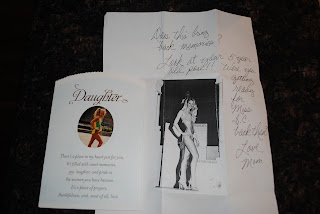 Does this bring
back memories?
Look it under 5 year
were you
getting
ready
for
Miss
B.C.
back then
Love,
Mum
Daughter
There's a place in my heart just for you.
It's filled with sweet memories,
joy, laughter, and pride in
the woman you have become.
It's a place of prayers,
thankfulness, and, most of all, love